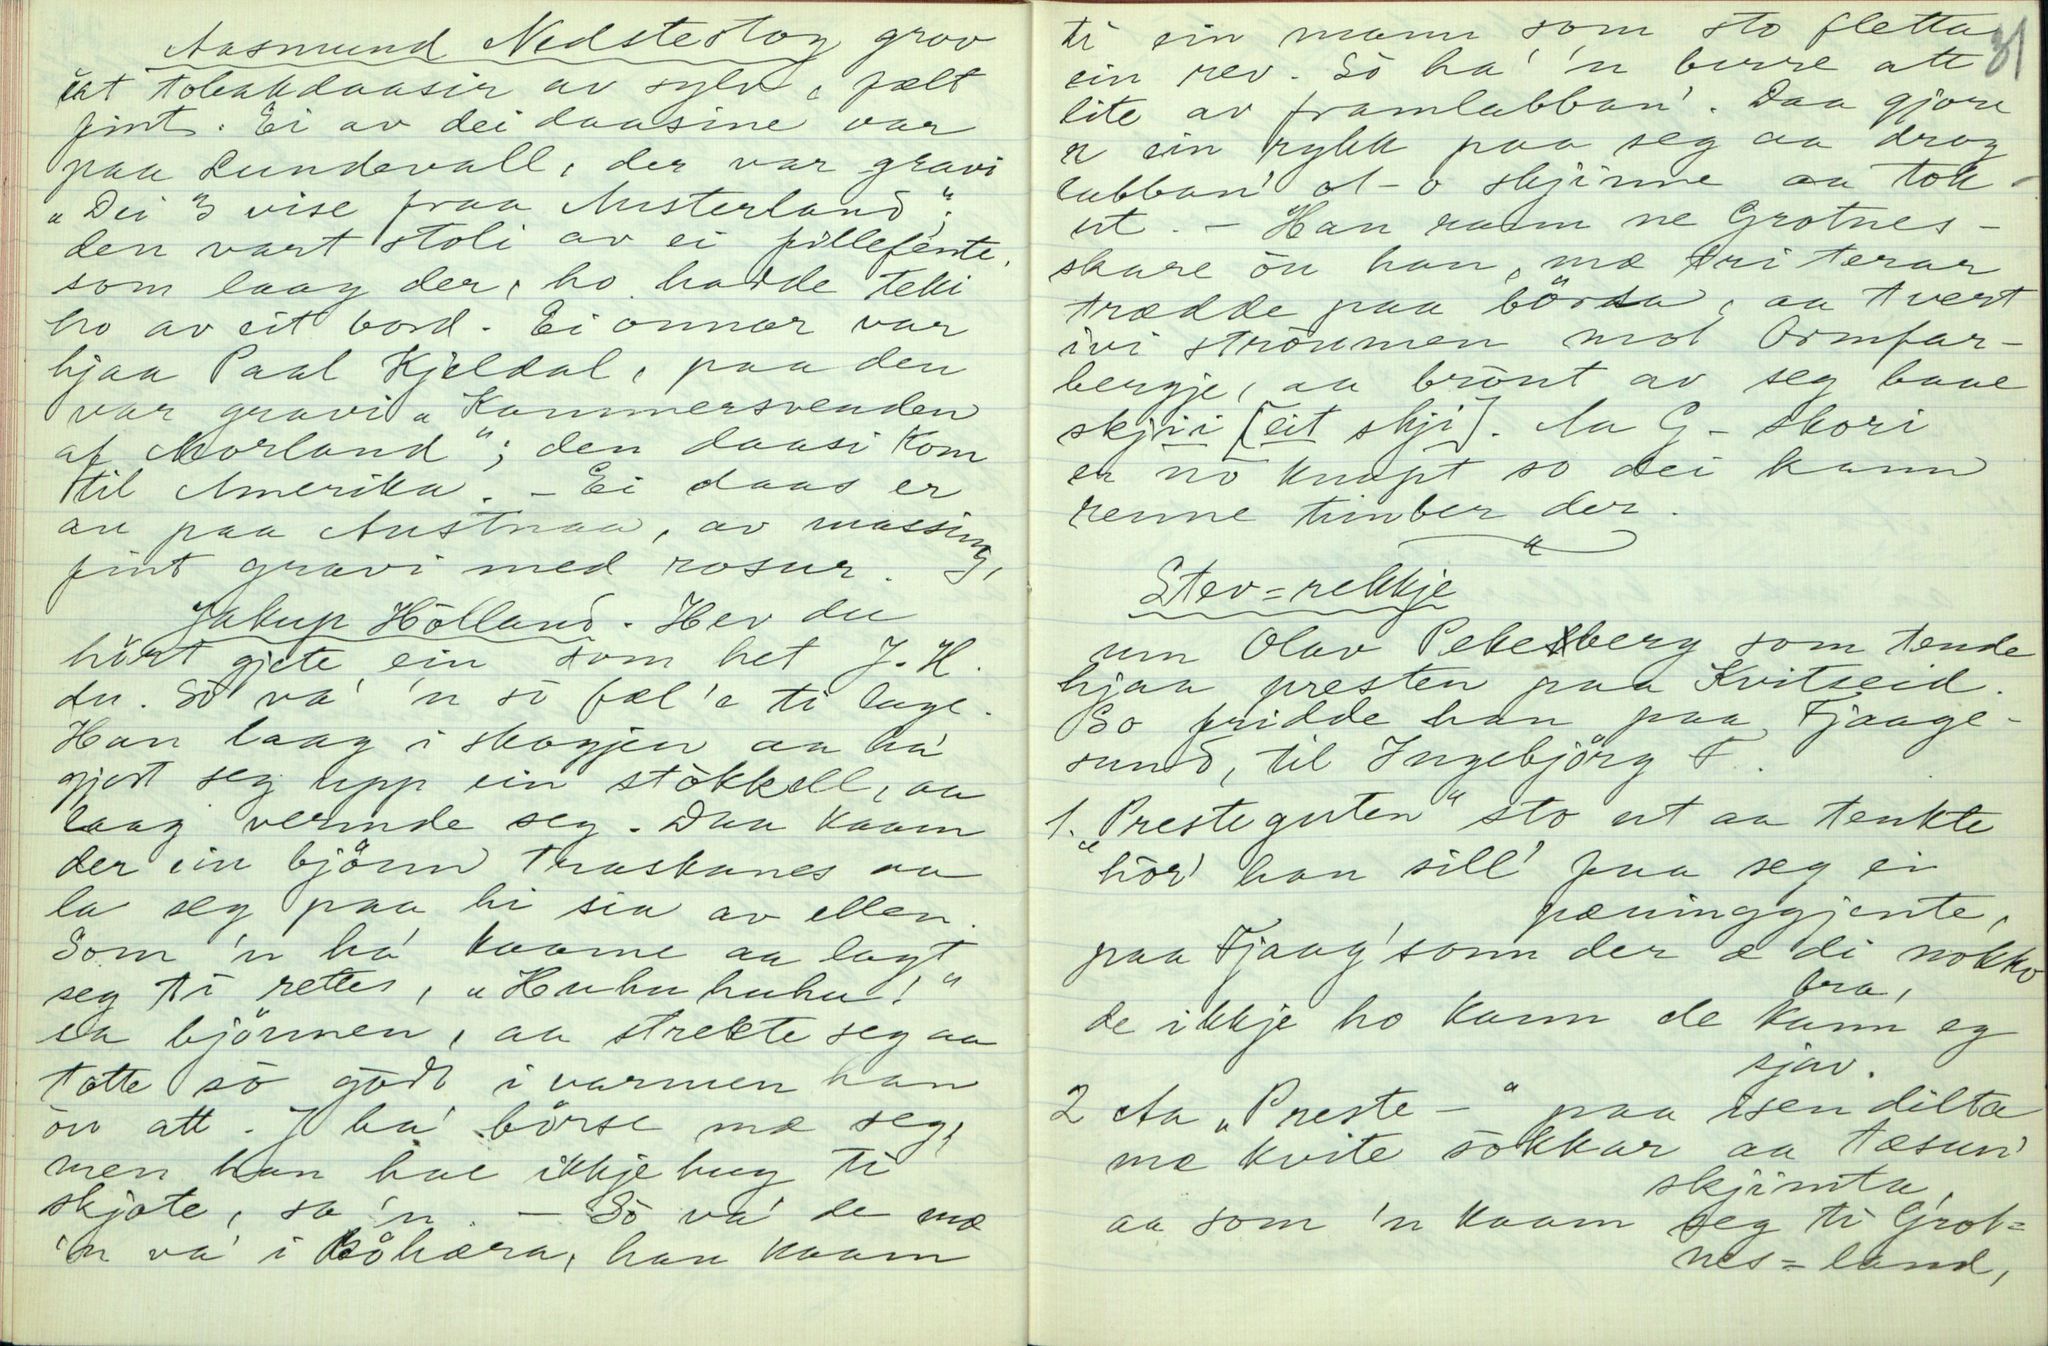 Aasmund Nedstestog grov
ut tobakdaasir av sylv, fælt
fint. Ei av dei daasine var
paa Lundevall, der var gravi
„Dei 3 vise fraa Austerland",
den vart stoli av ei fillefente,
som laag der, ho hadde teki
ho av eit bord. Ei onnor var
hjaa Paal Kjeldal, paa den
var gravi „Kammersvenden
af Morland"; den daasi kom
til Amerika. – Ei daas er
au paa Austnaa, av massing,
fint gravi med rosur.
Jakup Hölland. Hev du
hört gjete ein som het J. H.
du. Sö va' 'n sö fæl'e ti ljuge.
Han laag i skogjen aa ha'
gjort seg upp ein stökkell, aa
laag vermde seg. Daa kaam
der ein björnn traskanes aa
la seg paa hi sia av ellen.
Som 'n ha' kaame aa lagt
seg ti rettes, „Huhu huhu!"
sa björnnen, aa strekte seg aa
totte sö godt i varmen han
öu att. J ha' börse mæ seg,
men han hae ikkje hug ti
skjote, sa 'n. – Sö va' de mæ
'n va' i Böhæra, han kaam
31
ti ein mann som sto fletta
ein rev. Sö ha' 'n berre att
lite av framlabban'. Daa gjore
'n ein rykk paa seg aa drog
labban' ot-o skjinne aa tok
ut. – Han raam ne Grotnes-
skare öu han, mæ tri terar
trædde paa börsa, aa tvert
ivi ströumen mot Ormfar-
bergje, aa brönt av seg baae
skjii [eit skji]. Aa G- skori
er nö knapt so dei kann
renne timber der.
Stev=rekkje
um Olav Pekesberg som tende
hjaa presten paa Kvitseid.
So fridde han paa Fjaage-
sund, til Ingebjörg F.
1. „Presteguten" sto ut aa tenkte
hör' han sill' faa seg ei
pæninggjente,
paa Fjaag'sonn der æ di nokko
bra,
de ikkje ho kann de kann eg
sjav.
2 Aa „Preste –" paa isen dilta
mæ kvite sökkar aa tæsun'
skjimta,
aa som 'n kaam seg ti Grot=
nes=land,